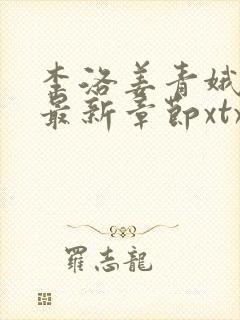 李洛姜青娥
最新章节xtx
羅志龍